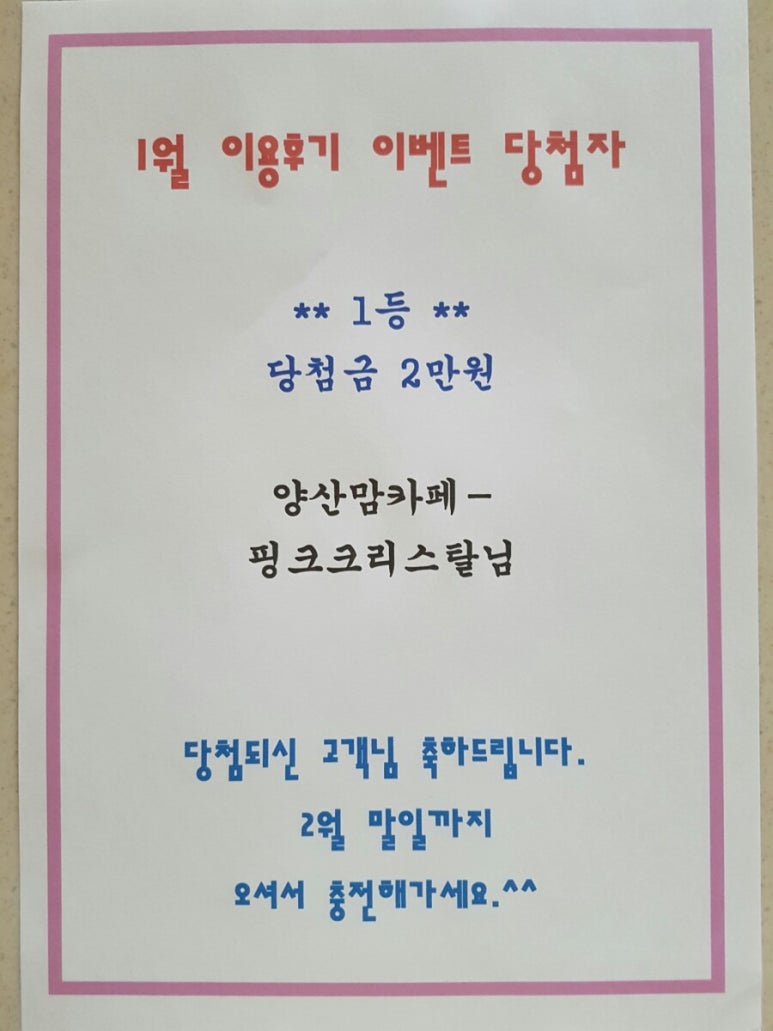 1월 이용후기 이벤트 당첨자
** 1등 **
당첨금 2만원
양산맘카페-
핑크크리스탈님
당첨되신 고객님 축하드립니다.
2월 말일까지
오셔서 충전해가세요.^^